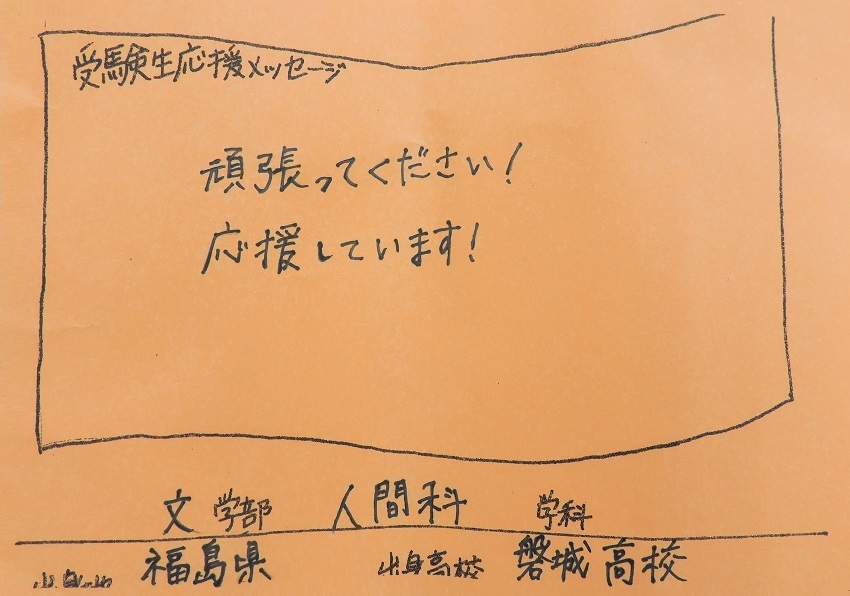 受験生応援メッセージ
頑張ってください!
応援しています!
文 学部 人間科 学科
出身地 福島県 出身高校 磐城高校